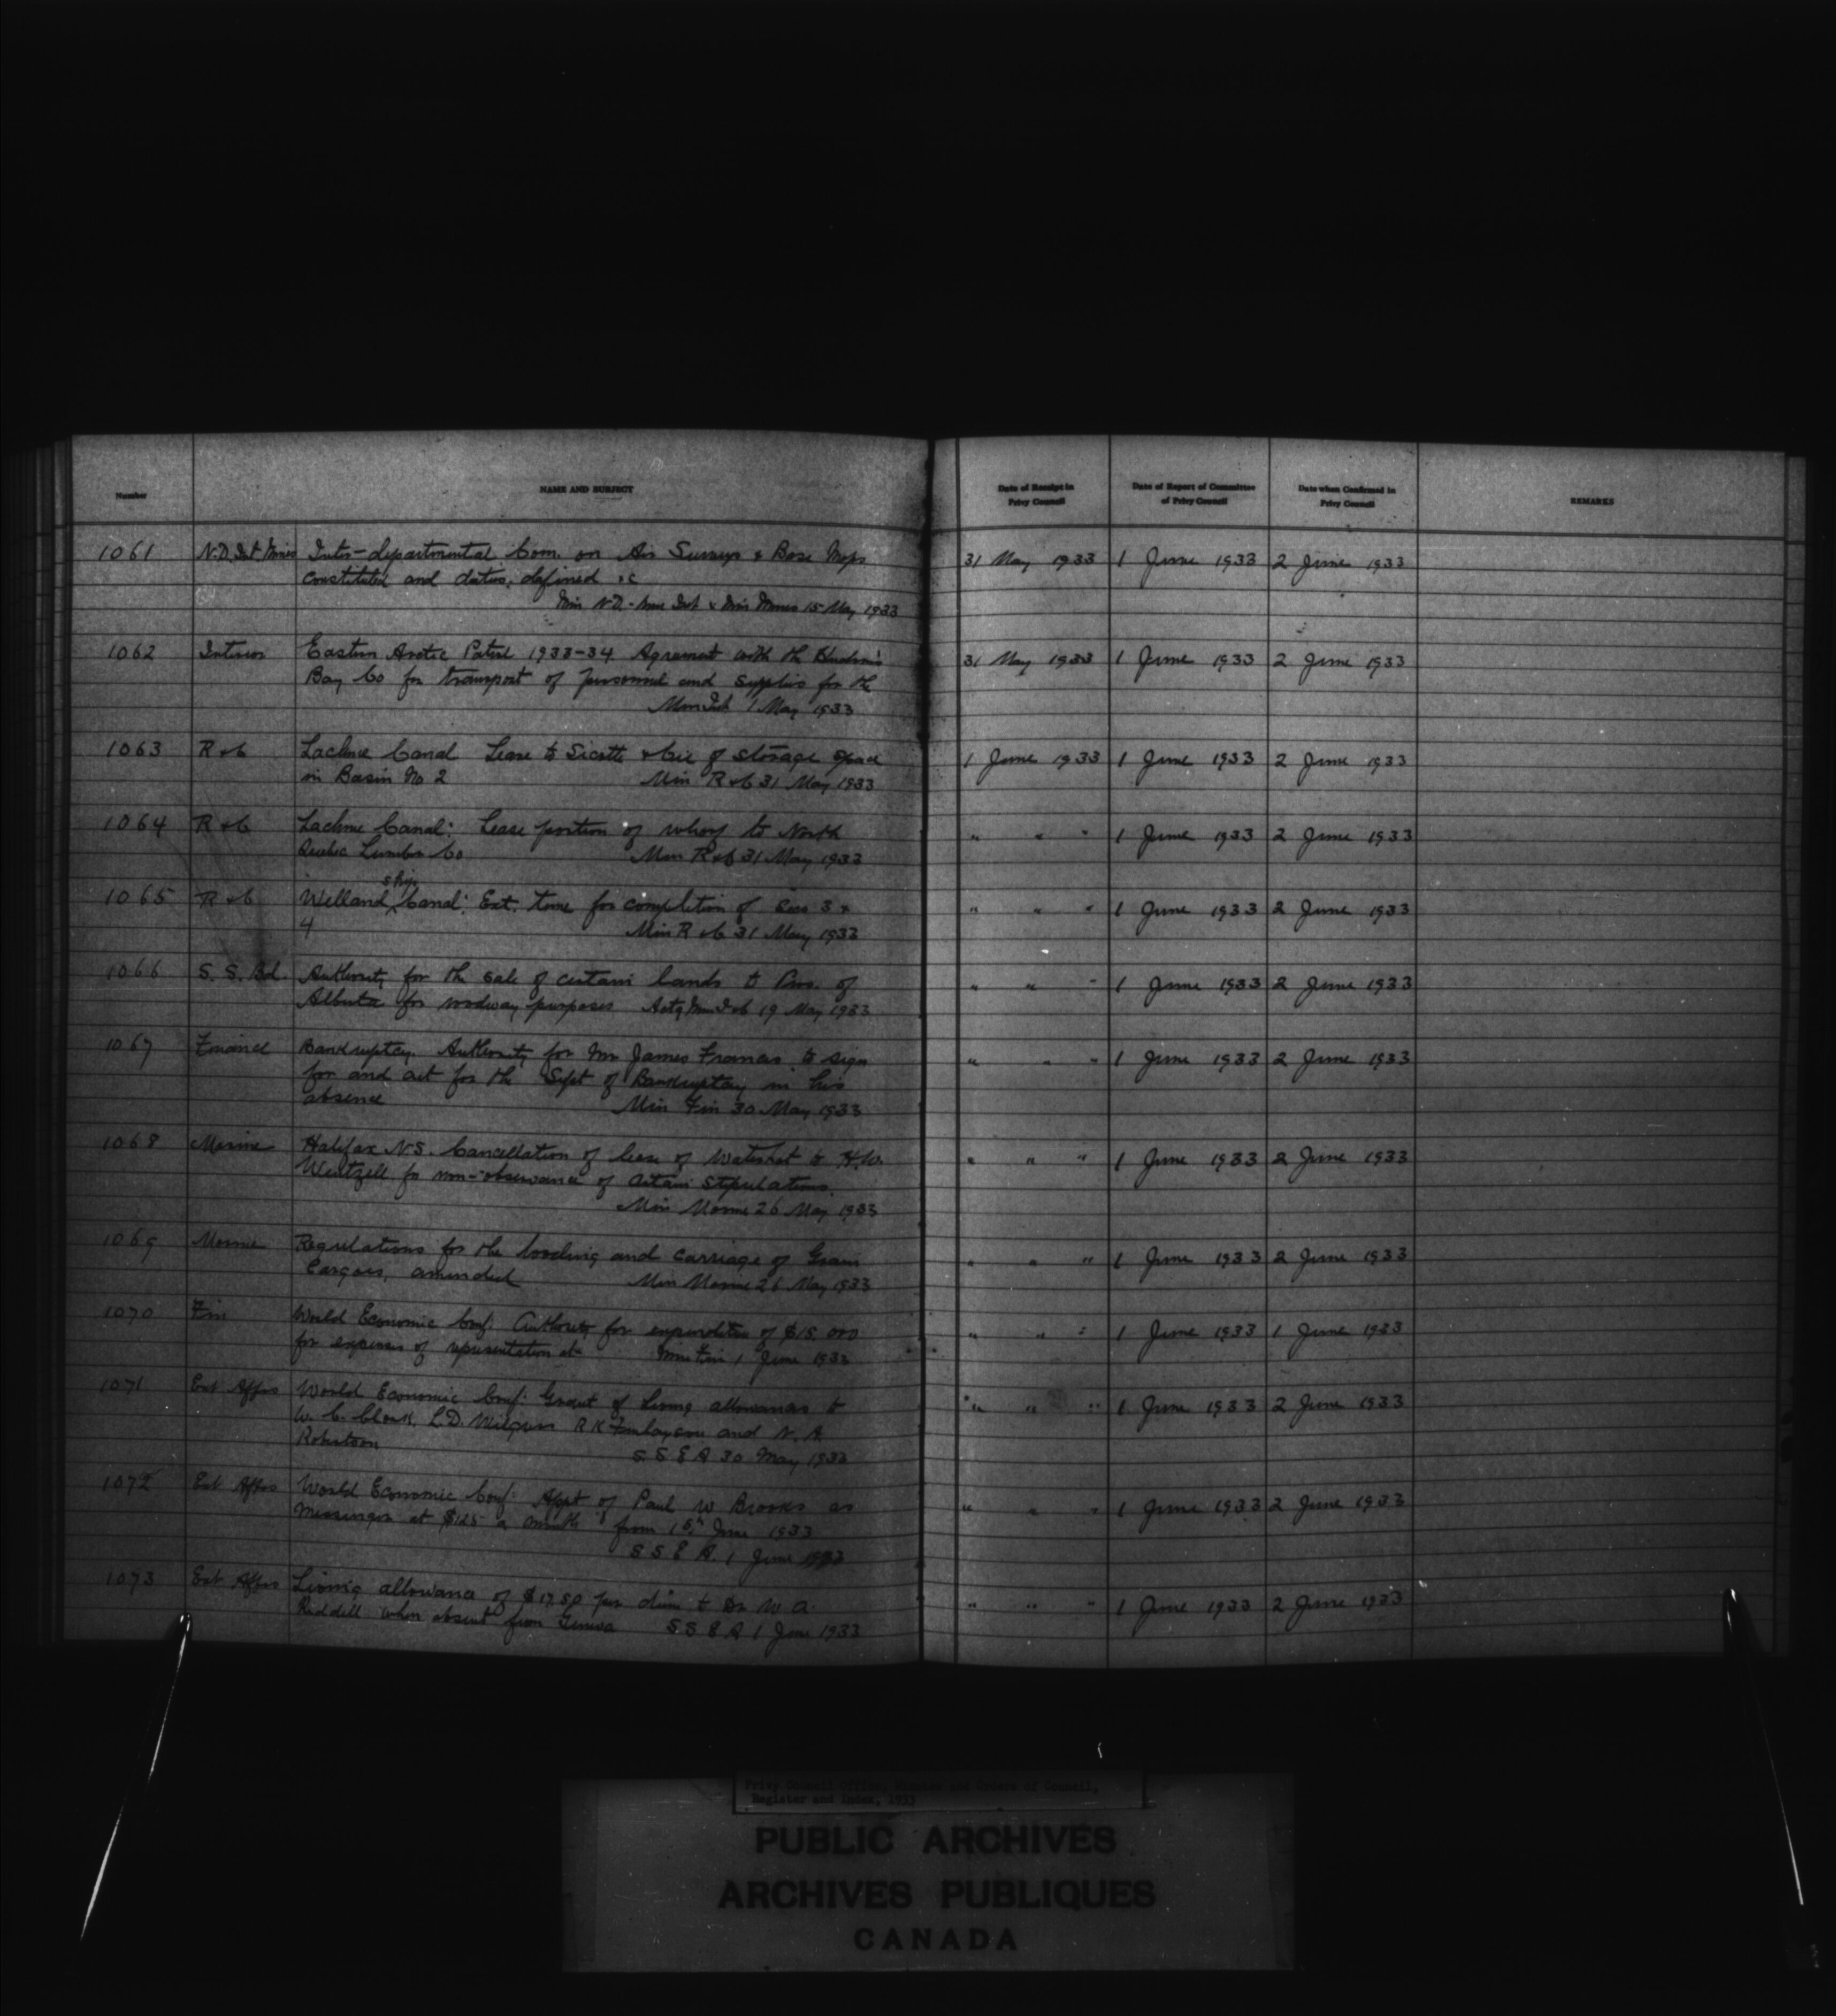 Number
NAME AND SUBJECT
Date of Receipt in
Privy Council
Date of Report of Committee
of Privy Council
Date when Confirmed in
Privy Council
REMARKS
1061 N.D. Int. Mines Inter-departmental Com. on Air Surveys & Base Maps 31 May 1933 1 June 1933 2 June 1933
constituted and duties defined &c
Min N.D. - Min Int & Min Mines 15 May 1933
1062 Interior Eastern Arctic Patrol 1933-34 Agreement with the Hudson's 31 May 1933 1 June 1933 2 June 1933
Bay Co for transport of personnel and supplies for the
Min Int 1 May 1933
1063 R & C Lachine Canal Lease to Sicotte & Cie of storage space 1 June 1933 1 June 1933 2 June 1933
in Basin No 2 Min R & C 31 May 1933
1064 R & C Lachine Canal: Lease portion of wharf to North " " " 1 June 1933 2 June 1933
Quebec Lumber Co Min R & C 31 May 1933
ship
1065 R & C Welland ^ Canal: Ext. time for completion of Secs 3 & " " " 1 June 1933 2 June 1933
4 Min R & C 31 May 1933
1066 S. S. Bd. Authority for the sale of certain lands to Prov. of " " " 1 June 1933 2 June 1933
Alberta for roadway purposes Actg Min 19 May 1933
1067 Finance Bankruptcy. Authority for Mr James Francis to sign " " " 1 June 1933 2 June 1933
for and act for the Supt of Bankruptcy in his
absence Min Fin 30 May 1933
1068 Marine Halifax N.S. Cancellation of lease of waterlot to H.W. " " " 1 June 1933 2 June 1933
Wentzell for non-observance of certain stipulations.
Min Marine 26 May 1933
1069 Marine Regulations for the loading and carriage of Grain " " " 1 June 1933 2 June 1933
Cargoes, amended Min Marine 26 May 1933
1070 Fin World Economic Conf: Authority for expenditure of $15,000 " " " 1 June 1933 1 June 1933
for expenses of representation at Min Fin 1 June 1933
1071 Ext Affrs World Economic Conf: Grant of Living allowances to " " " 1 June 1933 2 June 1933
W. C. Clark, L.D. Wilgress R K Finlayson and N. A.
Robertson S S E A 30 May 1933
1072 Ext Affrs World Economic Conf: Appt of Paul W Brooks as " " " 1 June 1933 2 June 1933
Messenger at $125 a month from 15th June 1933
S S E A. 1 June 1933
1073 Ext Affrs Living allowance of $17.50 per diem to Dr W A. " " " 1 June 1933 2 June 1933
Riddell when absent from Geneva S S E A 1 June 1933
Privy Council Office, Minutes and Orders of Council,
Register and Index, 1933
PUBLIC ARCHIVES
ARCHIVES PUBLIQUES
CANADA